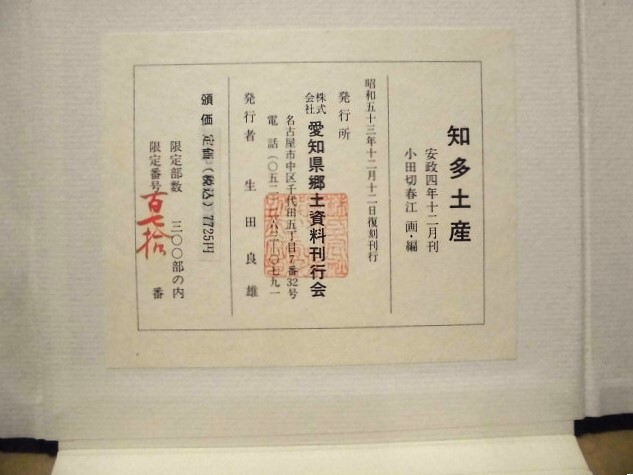 知多土産
安政四年十二月刊
小田切春江 画・編
昭和五十三年十二月十二日復刻刊行
発行所
株式会社 愛知県郷土資料刊行会
名古屋市中区千代田五丁目7番32号
電話(〇五二
〇七九一
発行者 生田良雄
頒価 定価(税込)7725円
限定部数 三〇〇部の内
限定番号 百七拾 番